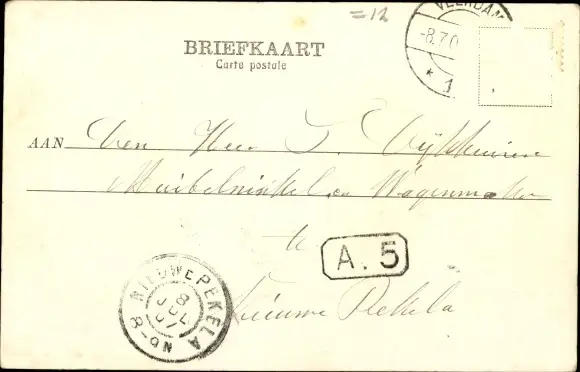 =12
VEENDAM
-8.7.0
* 1
BRIEFKAART
Carte postale
AAN Den Heer J.
Meubelwinkel en Wagenmaker
te
A. 5
Nieuwe Pekela
NIEUWE PEKELA
8 JUL 07
8-9N